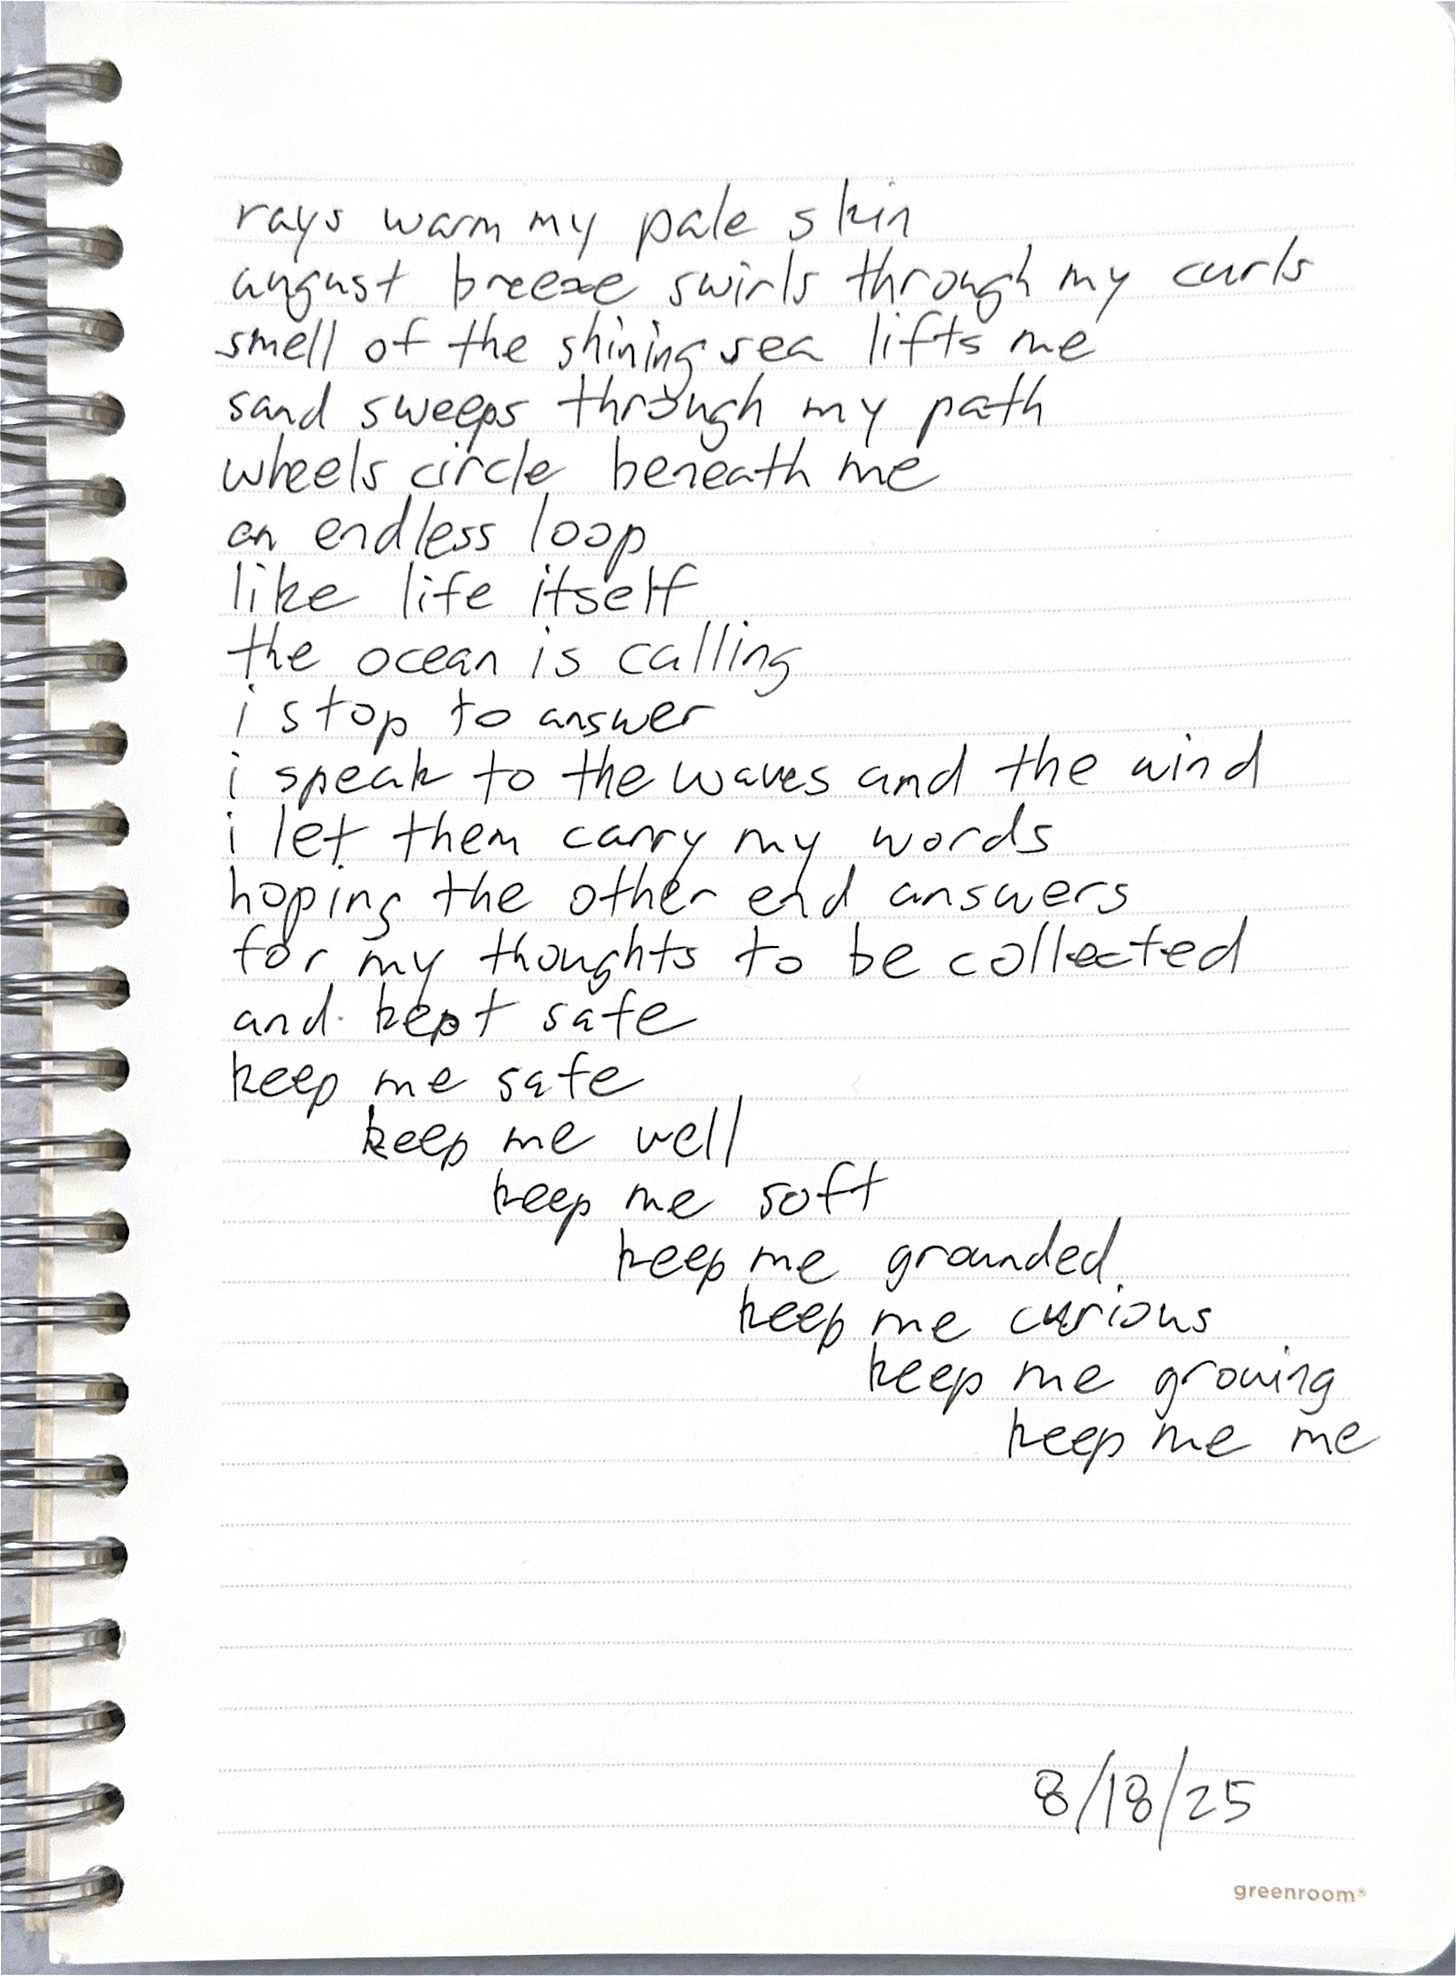 rays warm my pale skin
august breeze swirls through my curls
smell of the shining sea lifts me
sand sweeps through my path
wheels circle beneath me
an endless loop
like life itself
the ocean is calling
i stop to answer
i speak to the waves and the wind
i let them carry my words
hoping the other end answers
for my thoughts to be collected
and kept safe
keep me safe
keep me well
keep me soft
keep me grounded
keep me curious
keep me growing
keep me me
8/18/25
greenroom®